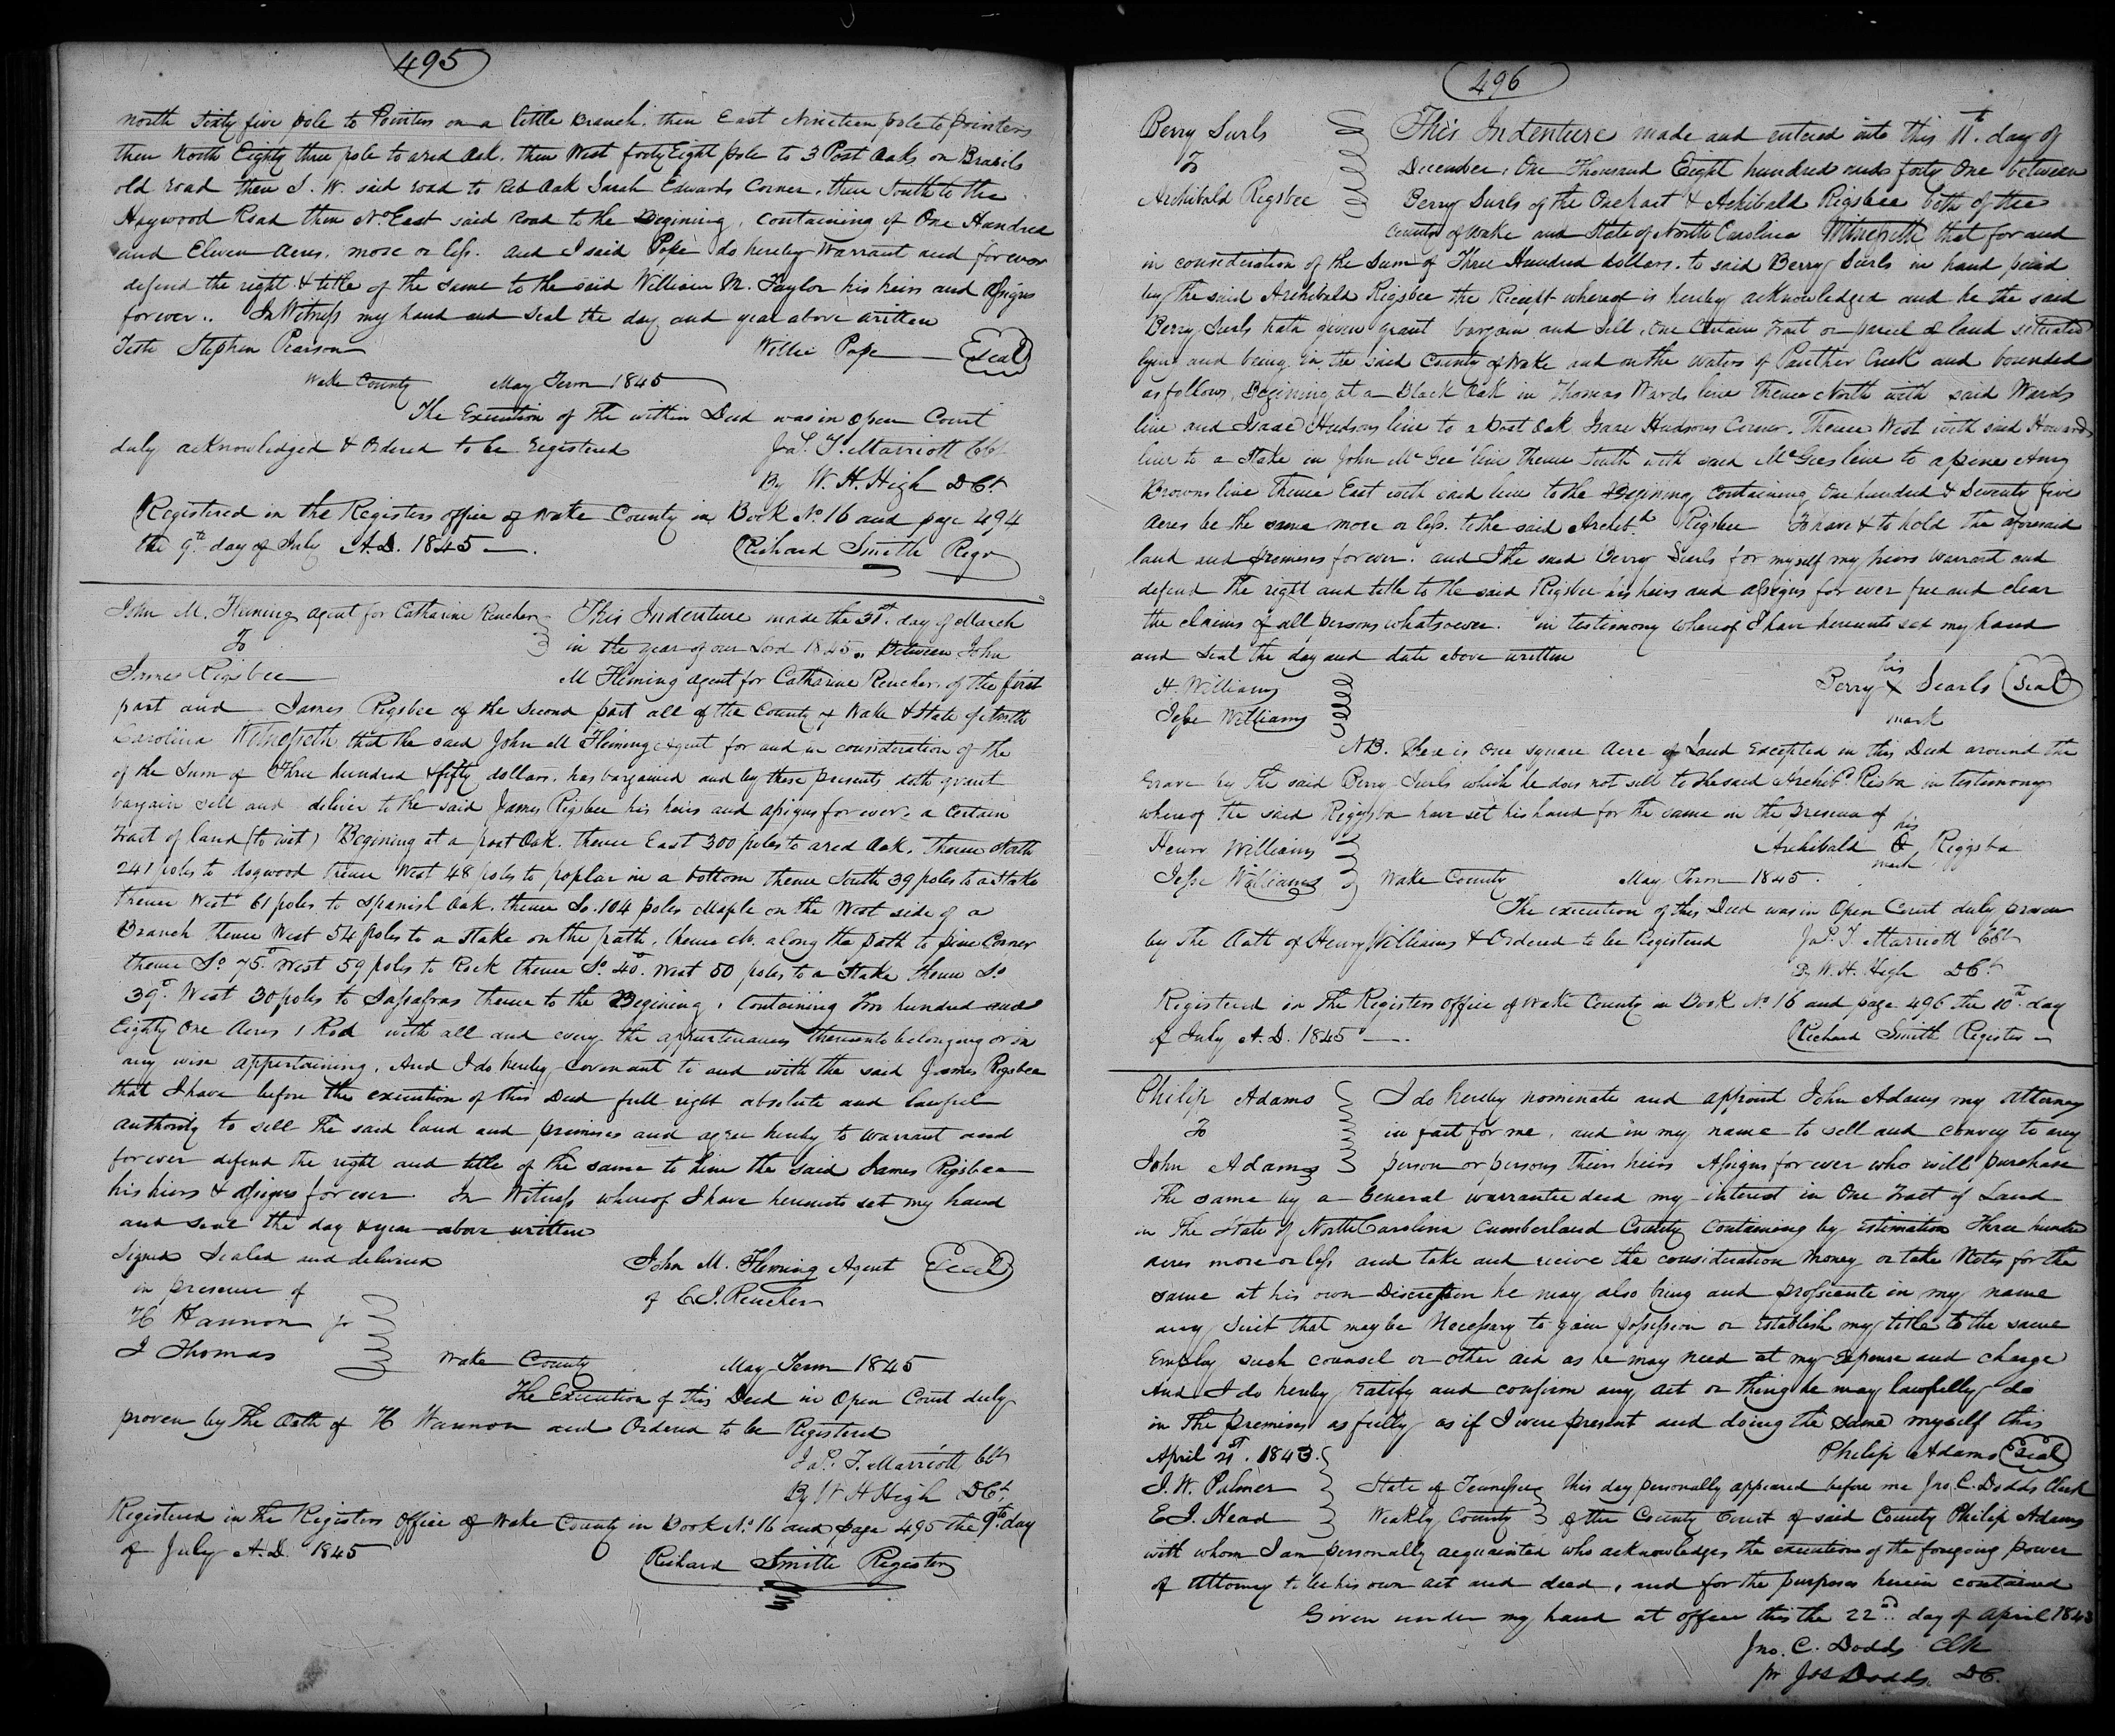 495
north Sixty five pole to Pointers on a little Branch. then East Nineteen pole to pointers
then North Eighty three pole to a red Oak. then West forty Eight pole to 3 Post Oaks on
old road then S. W. said road to Red Oak Sarah Edwards Corner. then South to the
Haywood Road then No East said road to the Begining. containing of One Hundred
and Eleven Acres, more or less. and I said Pope do hereby Warrant and forever
defend the right & title of the same to the said William M. Taylor his heirs and assigns
forever. In Witness my hand and Seal the day and year above written
Teste Stephen Pearson Willie Pope Seal
Wake County May Term 1845
The Execution of the within Deed was in Open Court
duly acknowledged & Ordered to be registered Jas. T. Marriott Clk
By W. H. High D Ct.
Registered in the Registers office of Wake County in Book No. 16 and page 494
the 9th day of July A.D. 1845 Richard Smith Regr
John M. Fleming agent for Catharine Rencher This Indenture made the 31st. day of March
To in the year of our Lord 1845. Between John
James Rigsbee M Fleming agent for Catharine Rencher, of the first
part and James Rigsbee of the Second part all of the County of Wake & State of North
Carolina Witnesseth that the said John M Fleming Agent for and in consideration of the
of the Sum of Three hundred & fifty dollars. has bargained and by these presents doth grant
bargain sell and deliver to the said James Rigsbee his heirs and assigns for ever. a certain
Tract of land (to wit) Begining at a post Oak. thence East 300 poles to a red Oak. thence North
241 poles to dogwood thence West 48 poles to poplar in a bottom thence South 39 poles to a Stake
thence West 61 poles to Spanish Oak. thence So. 104 poles Maple on the West side of a
Branch thence West 54 poles to a Stake on the path, thence No. along the path to pine Corner
thence So. 75°. West 59 poles to Rock thence So. 40°. West 50 poles to a Stake. thence So
39°. West 30 poles to Sassafras thence to the Begining. Containing Two hundred and
Eighty One Acres 1 Rod with all and every the appurtenances thereunto belonging or in
any wise appertaining. And I do hereby Covenant to and with the said James Rigsbee
that I have before the execution of this Deed full right absolute and lawful
authority to sell The said land and premises and agree hereby to warrant and
forever defend the right and title of the same to him the said James Rigsbee
his heirs & assigns for ever. In Witness whereof I have hereunto set my hand
and seal the day & year above written
Signed Sealed and delivered John M. Fleming Agent Seal
in presence of of C. J. Rencher
H Hannon jr
J Thomas Wake County May Term 1845
The Execution of this Deed in Open Court duly
proven by The Oath of H Hannon and Ordered to be Registered
Jas. T. Marriott Clk
By W H High D Ct.
Registered in The Registers Office of Wake County in Book No. 16 and page 495 the 9th. day
of July A.D. 1845 Richard Smith Register
496
Berry Surls This Indenture made and entered into this 11th. day of
To December, One Thousand Eight hundred and forty One between
Archibald Rigsbee Berry Surls of the One part & Achibald Rigsbee both of the
County of Wake and State of North Carolina Witnesseth that for and
in consideration of the Sum of Three Hundred dollars. to said Berry Surls in hand paid
by The said Archibald Rigsbee the Reciept whereof is hereby acknowledged and he the said
Berry Surls hath given grant bargain and sell, One Certain Tract or parcel of land situated
lying and being in the said County of Wake and on the waters of Panther Creek and bounded
as follows, Begining at a Black Oak in Thomas Wards line Thence North with said Wards
line and Isaac Hudsons line to a Post Oak Isaac Hudsons Corner. Thence West with said Howards
line to a Stake in John McGee line thence South with said McGees line to a pine Amy
Browns line Thence East with said line to the Begining Containing One hundred & Seventy five
Acres be the same more or less. to the said Archibd. Rigsbee To have & to hold the aforesaid
land and premises for ever. and I the said Berry Surls for myself my heirs warrant and
defend The right and title to the said Rigsbee his heirs and assigns for ever free and clear
the claims of all persons whatsoever. in testimony whereof I have hereunto set my hand
and Seal the day and date above written
H. Williams his
Jesse Williams Berry X Searls Seal
mark
NB. There is One square Acre of Land Excepted in this Deed around the
Grave by The said Berry Surls which he does not sell to the said Archibd. Risba in testimony
whereof the said Riggsba have set his hand for the same in the presence of
Henry Williams his
Archibald X Riggsba
mark
Jesse Williams Wake County May Term 1845.
The execution of this Deed was in Open Court duly proven
by The Oath of Henry Williams & Ordered to be Registered Jas. T. Marriott Clk
B. W. H. High D Ct
Registered in The Registers Office of Wake County in Book No 16 and page 496 the 10th. day
of July A. D. 1845 Richard Smith Register
Philip Adams I do hereby nominate and appoint John Adams my Attorney
To in fact for me, and in my name to sell and convey to any
John Adams person or persons theirs heirs Assigns for ever who will purchase
The same by a General warrantee deed my interest in One Tract of Land
in The State of North Carolina Cumberland County Containing by Estimation Three hundred
acres more or less and take and recieve the consideration Money or take Notes for the
same at his own Discretion he may also bring and prosecute in my name
any suit that may be Necessary to gain possession or Establish my title to the same
Employ such counsel or other aid as he may need at my Expense and charge
And I do hereby ratify and confirm any act or thing he may lawfully do
in The premises as fully as if I were present and doing the same myself this
April 21st. 1843. Philip Adams Seal
J. W. Palmer State of Tennessee This day personally appeared before me Jno. C. Dodds Clerk
E J. Head Weakly County of the County Court of said County Philip Adams
with whom I am personally acquainted who acknowledges the execution of the foregoing power
of attorney to be his own act and deed, and for the purposes herein contained
Given under my hand at office this the 22nd. day of April 1843
Jno. C. Dodds Clk
pr Jos Dodds D C.